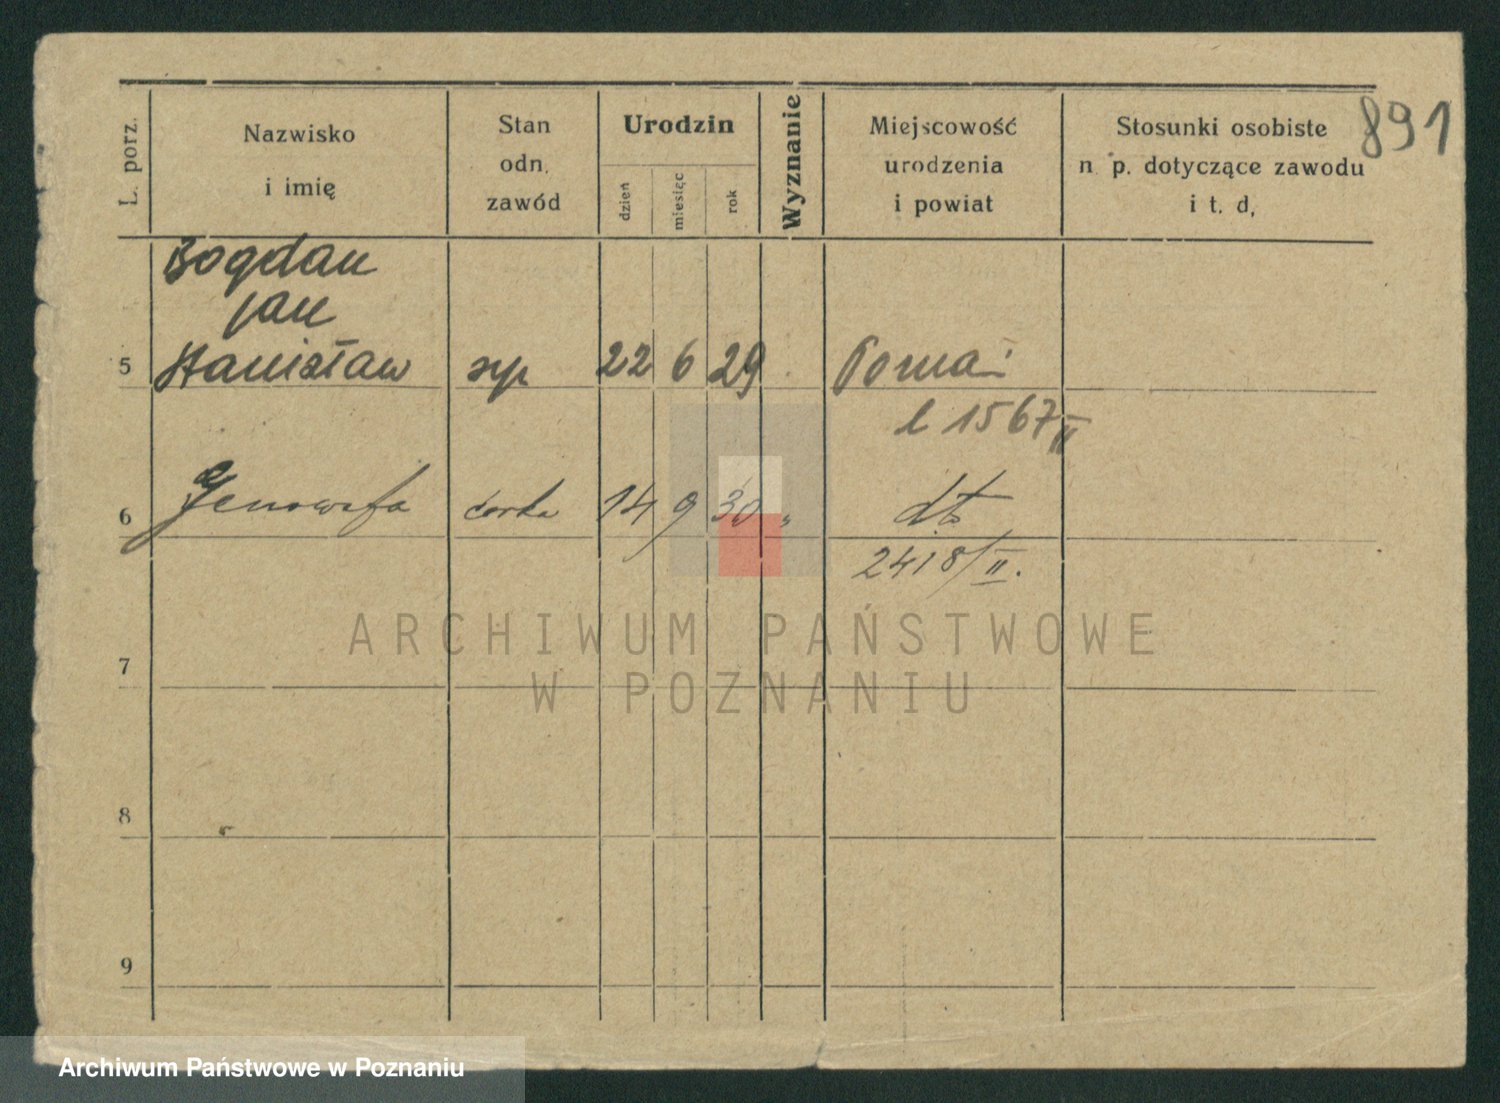 891
L. porz.
Nazwisko
i imię
Stan
odn.
zawód
Urodzin
dzień
miesiąc
rok
Wyznanie
Miejscowość
urodzenia
i powiat
Stosunki osobiste
n p. dotyczące zawodu
i t. d,
Bogdan
Jan
5 Stanisław syn 22 6 29
l 1567 II
6 Genowefa córka 14 9 30 " dto
2418/II.
7
8
9
ARCHIWUM PAŃSTWOWE
W POZNANIU
Archiwum Państwowe w Poznaniu